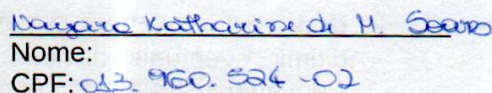 Nayara Katharine de M. Soares
Nome:
CPF: 013.960.524-02